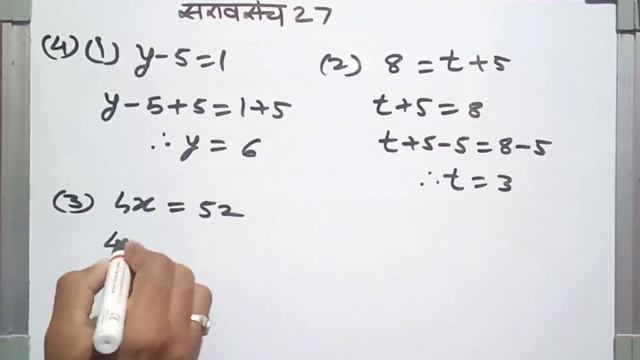 सरावसंच 27
(4) (1) y-5=1
y-5+5=1+5
∴ y = 6
(2) 8 = t+5
t+5 = 8
t+5-5=8-5
∴ t = 3
(3) 4x = 52
4x